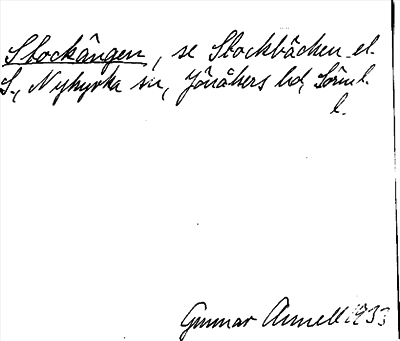 Stockängen, se Stockbäcken el.
S., Nykyrka sn, Jönåkers hd, Söml.
l.
Gunnar Arnell 1933